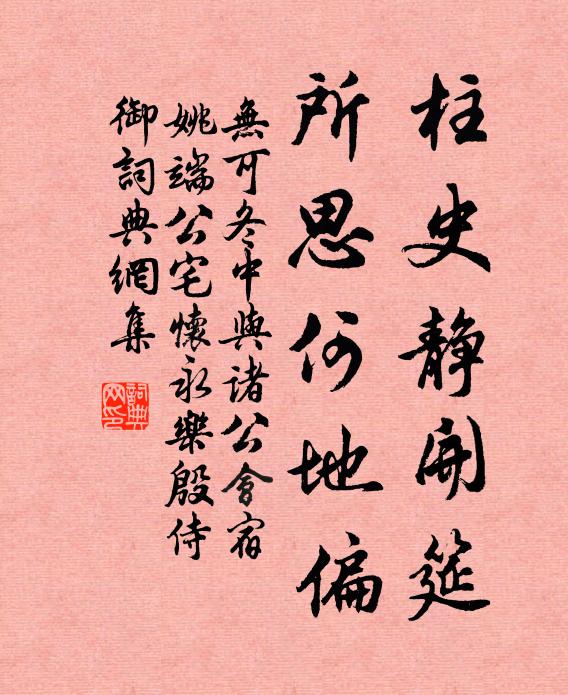 柱史静開筵
所思何地偏
無可冬中與諸公會宿
姚端公宅懷永樂殷侍
御詞典網集
詞典网印